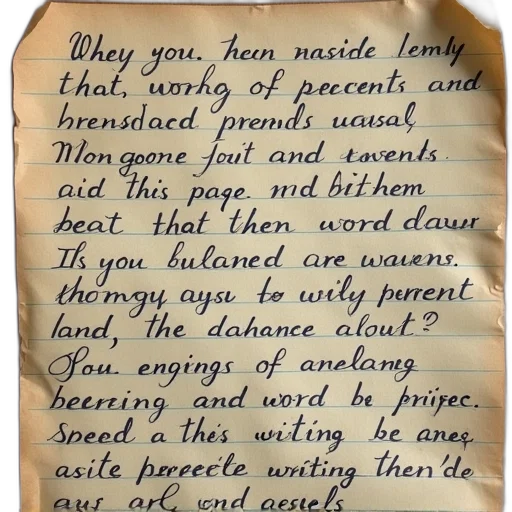 Whey you. heen naside lemly
that, worhg of peccents and
hrensdacd premds uausal,
Mon goone fout and tovents.
aid this page. md bithem
beat that then word dauur
Ils you bulaned are wauens.
thomgy aysu to wily perrent
land, the dahance alout?
engings of anelang
beerring and word be priijec.
Speed a this witing be aneg
asite pereecte writing then'de
aus arl, and aesels